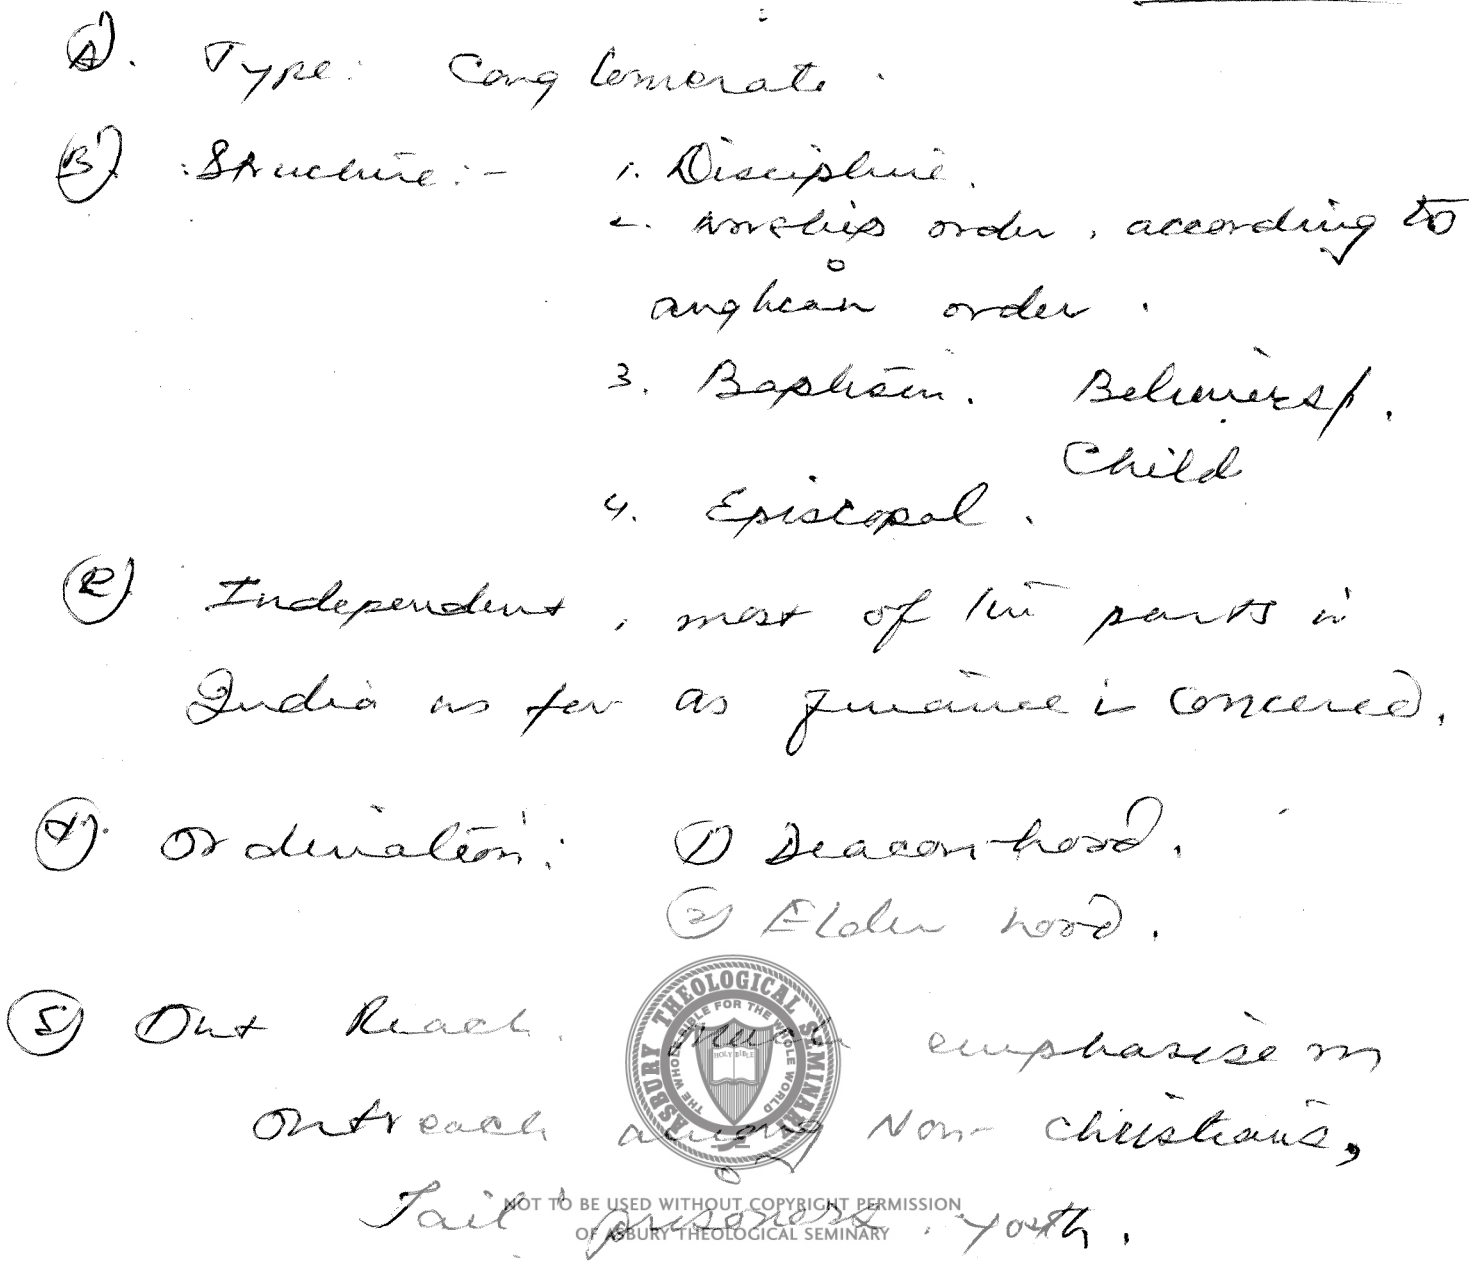 A). Type: Conglomerate.
B). Structure:- 1. Discipline.
2. Worship order, according to
anglican order.
3. Baptism. Believers/.
Child
4. Episcopal.
Independent, most of the parts in
India as far as finance is concered.
Ordination: 1) Deacon-hood.
2) Elder hood.
5) Out Reach. Much emphasise on
outreach among Non-christians,
Jail prisoners. youth.
ASBURY THEOLOGICAL SEMINARY
THE WHOLE BIBLE FOR THE WHOLE WORLD
HOLY BIBLE
NOT TO BE USED WITHOUT COPYRIGHT PERMISSION
OF ASBURY THEOLOGICAL SEMINARY